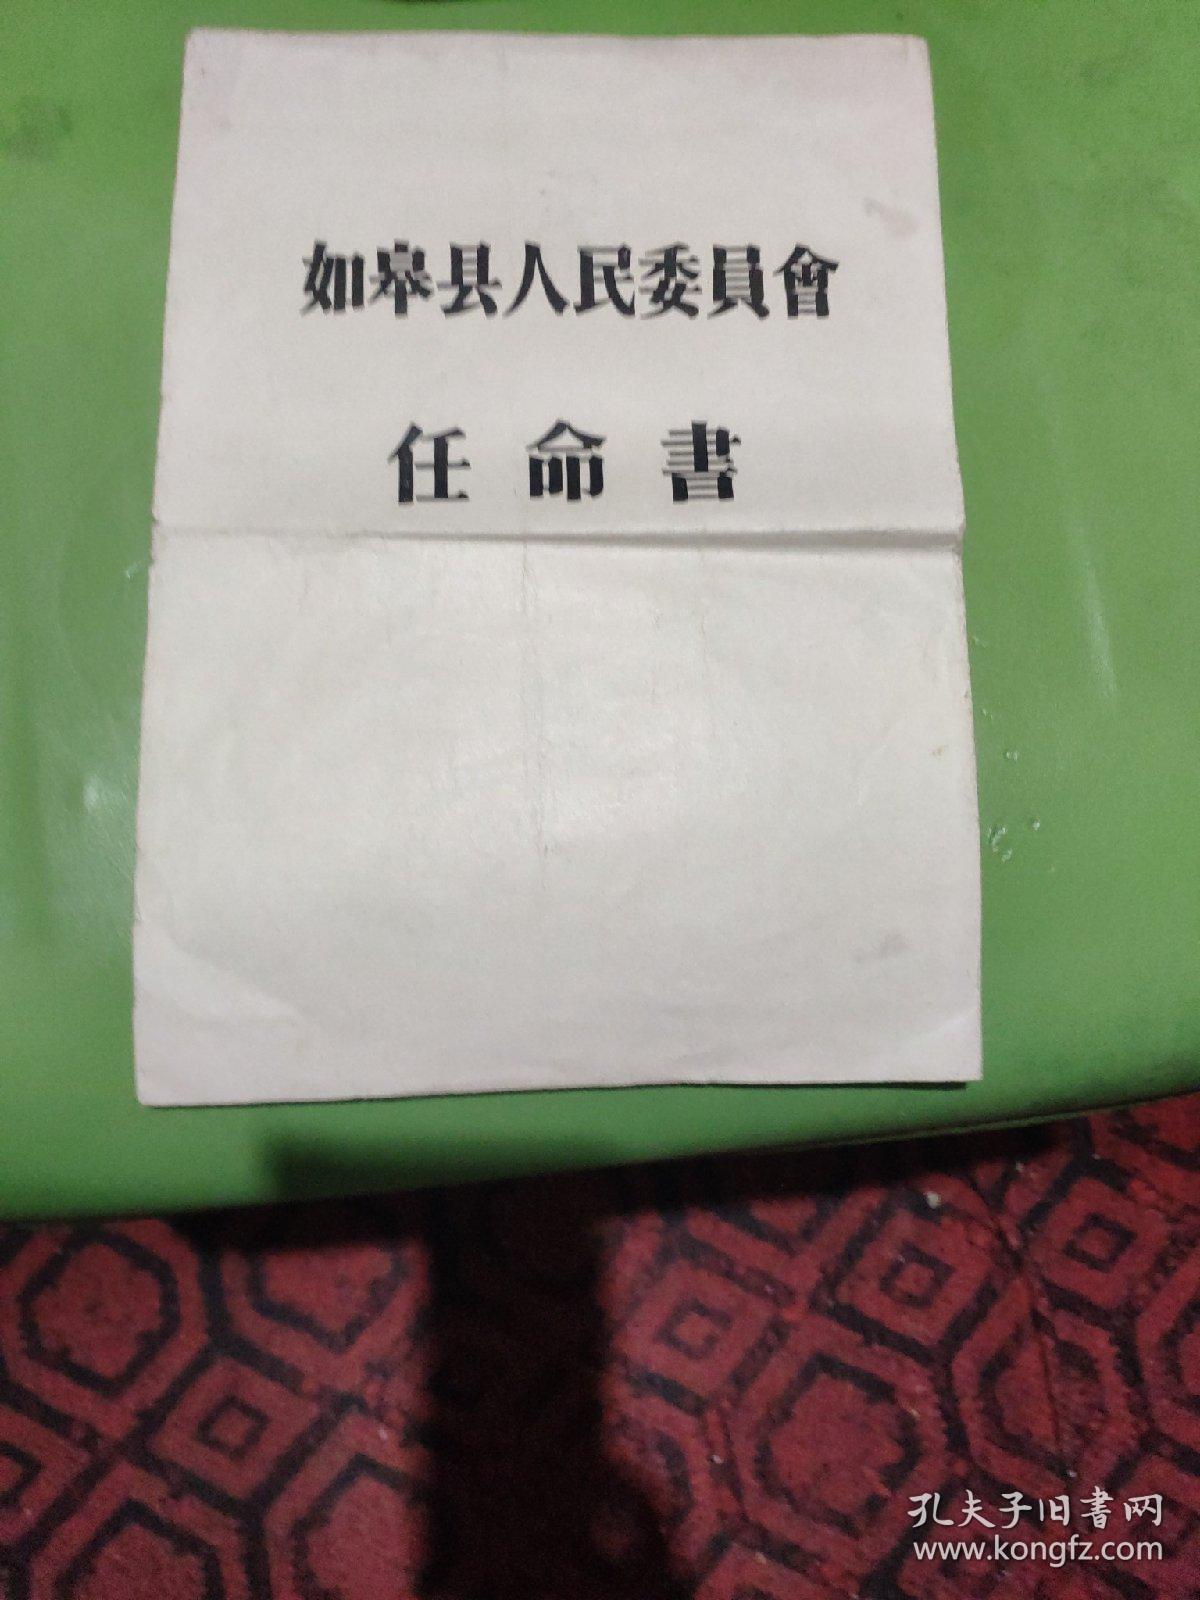 如皋县人民委員會
任命書
孔夫子旧書网
www.kongfz.com